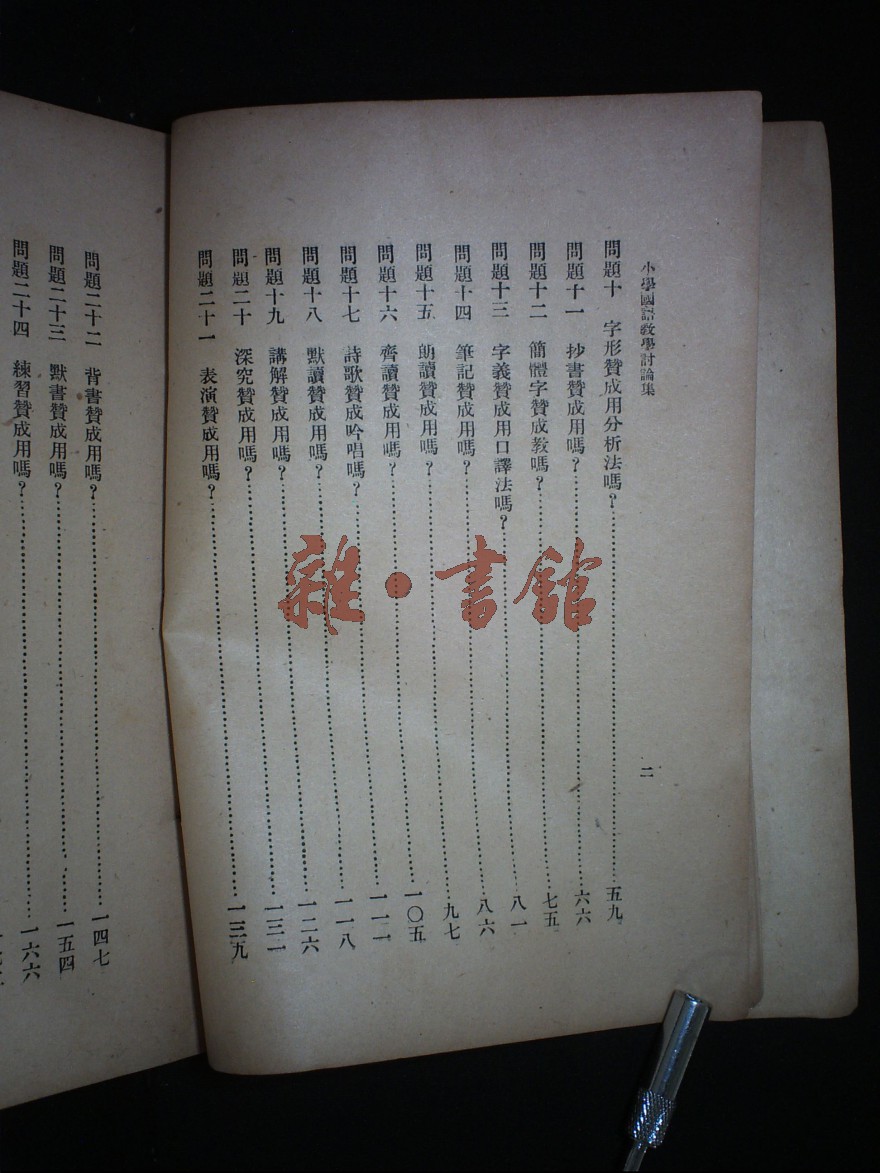 小學國語教學討論集
二
問題十 字形贊成用分析法嗎？……五九
問題十一 抄書贊成用嗎？……六六
問題十二 簡體字贊成教嗎？……七五
問題十三 字義贊成用口譯法嗎？……八一
問題十四 筆記贊成用嗎？……八六
問題十五 朗讀贊成用嗎？……九七
問題十六 齊讀贊成用嗎？……一〇五
問題十七 詩歌贊成吟唱嗎？……一一一
問題十八 默讀贊成用嗎？……一一八
問題十九 講解贊成用嗎？……一二六
問題二十 深究贊成用嗎？……一三一
問題二十一 表演贊成用嗎？……一三九
問題二十二 背書贊成用嗎？……一四七
問題二十三 默書贊成用嗎？……一五四
問題二十四 練習贊成用嗎？……一六六
雜·書館